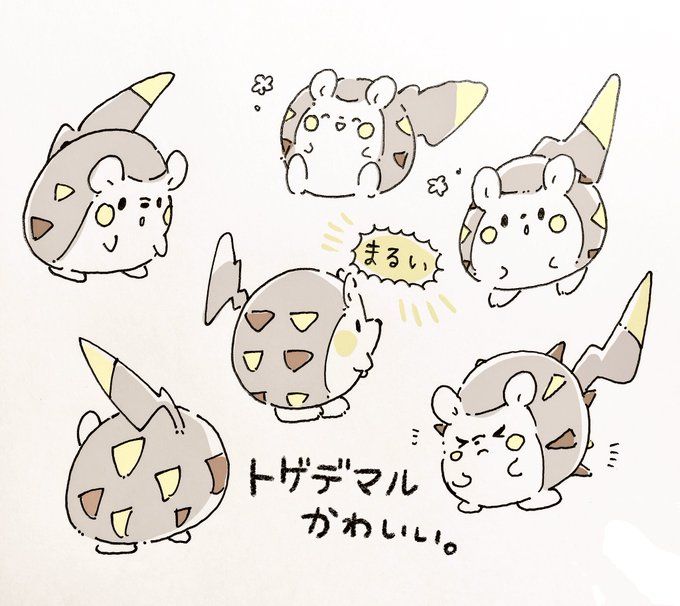 まるい
トゲデマル
かわいい。